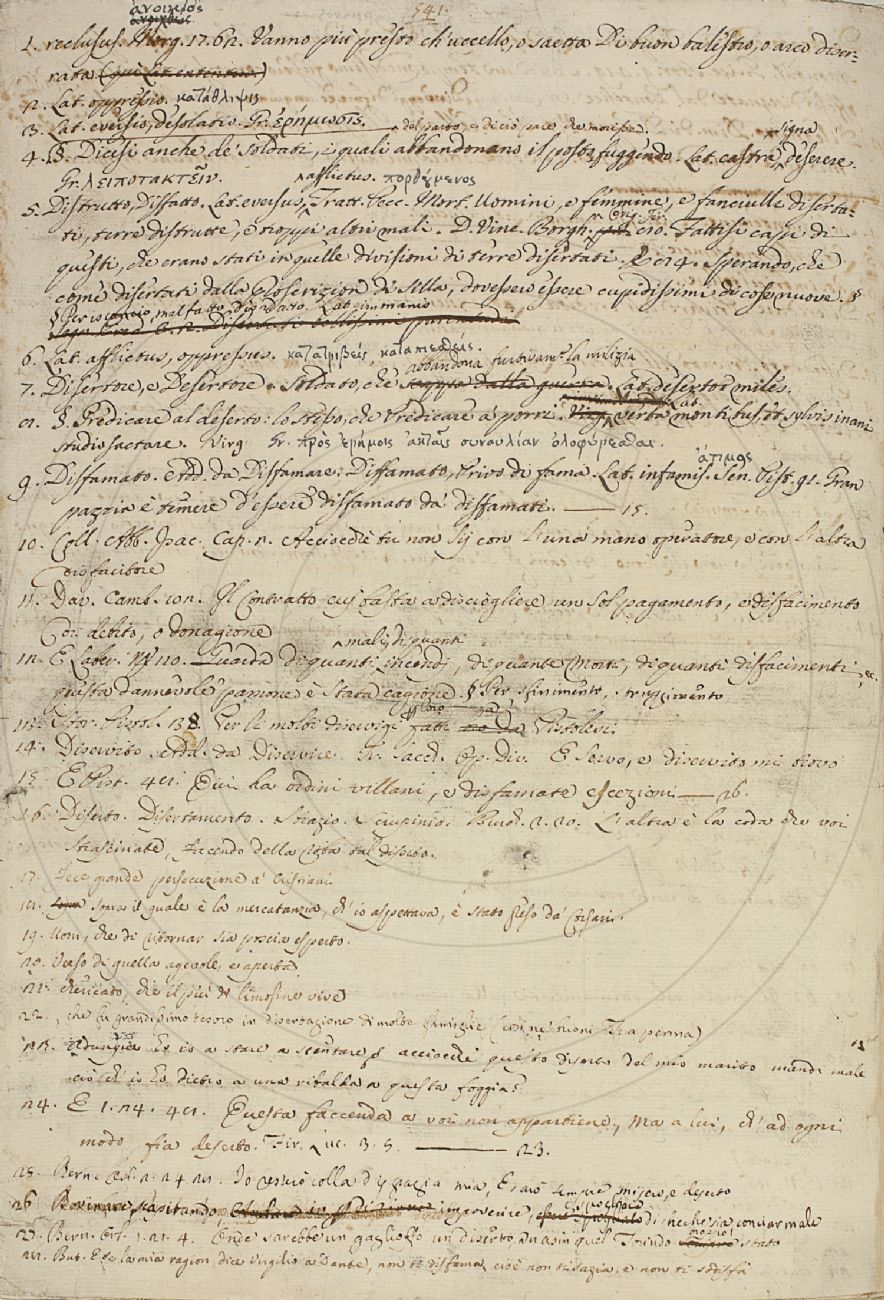 541.
ἀνοικτός
1. reclusus. Morg. 17. 62. Vanno più presto ch'uccello, o saetta Di buon balestro, o arco diser-
rata (qui Lat. extentus)
2. Lat. oppressio. κατάθλιψις
3. Lat. eversio, desolatio. Gr. ἐρήμωσις. del parto, e di ciò pare, che morisse.
signa
4. §. Dicesi anche de' soldati, i quali abbandonano il posto fuggendo. Lat. castra, deserere.
Gr. λειποτακτεῖν. afflictus. πορθέμενος
5. Distrutto, Disfatto. Lat. eversus, Tratt. Pecc. Mort. Uomini, e femmine, e fanciulle diserta-
ti, terre distrutte, e troppi altri mali. D. Vinc. Borgh. Orig. Fir. Fattisi capi di
questi, che erano stati in quelle divisioni di terre disertati. Sperando, che
come disertati dalla Proscrizion di Silla, dovessero essere cupidissimi di cose nuove. §
§ Per isconcio, malfatto, disadatto. Lat. immanis
6. Lat. afflictus, oppressus. κατατριβείς, καταπιεσθείς.
abbandona furtivam.te la milizia
7. Disertore, e Desertore. Soldato, che Lat. desertor miles.
Lat.
8. §. Predicare al deserto: lo stesso, che Predicare a' porri. Virg. verba montibus, et sylvis inani
studio jactare. Virg. Gr. πρὸς ἐρήμοις ἀκταῖς συναυλίαν ὀλοφύρεσθαι.
ἄτιμος
9. Disfamato. Add. da Disfamare: Diffamato, Privo di fama. Lat. infamis. Sen. Pist. 91. Gran
pazzia è temere d'essere disfamato da' disfamati. —— 15.
10. Coll. Abb. Isac. Cap. Acciocchè tu non sij con l'una mano operatore, e con l'altra
disfacitore
11. Dav. Camb. Il Contratto ... a disciogliere un sol pagamento, e disfacimento
di debito, o donagione
mali, di quanti
12. E Laber. Guarda di quanti incendj, di quante morti, di quanti disfacimenti ec.
questa dannevole passione è stata cagione. § Per sfinimento, struggimento
13. Stor. Pistol. 138. Per li molti diservigi fatti Pistolesi.
14. Diservito. Add. da Diservire. Fr. Jacop. E servo, e diservito mi trovo
15. E Pist. Qui ha ordini villani, e disfamate eccezioni —— 26.
16. Diserto. Disertamento. Strazio. Sciupinio. Buod. 2. 20. L'altra è la coda che voi
strascinate, facendo della roba tal diserto.
17. Fece grande persecuzione a' Cristiani.
18. sopra il quale è la mercatanzia, ch'io aspettava, è stato preso da' Corsari.
19. Uom, che di ritornar sia poscia esperto.
20. Verso di quella agevole, e aperta
21. che il più di limosine vive
22. , che fu grandissimo tesoro in disertazione di molte famiglie (così ne' buoni Testi a penna)
23. Ho io a stare a stentare, acciocchè questo diserto del mio marito mandi male
ciò ch'io ho dietro a una ribalda a questa foggia?
24. E 1. 24. Questa faccenda a voi non appartiene, Ma a lui, ch'ad ogni
modo fia deserto. Fir. Luc. 3. 5. ——— 23.
25. Bern. Orl. Io ... colla disgrazia mia, E sarò sempre misero, e deserto
26. Rovinare, capitando, impoverire, di chechessia, conciar male
27. Bern. Orl. 1. 21. 4. Onde sarebbe un gaglioffo un diserto, Un asin quel Tarindo stato
28. But. E se la mia ragion, dice Virgilio a Dante, non ti disfama, cioè non ti sazia, e non ti soddisfà